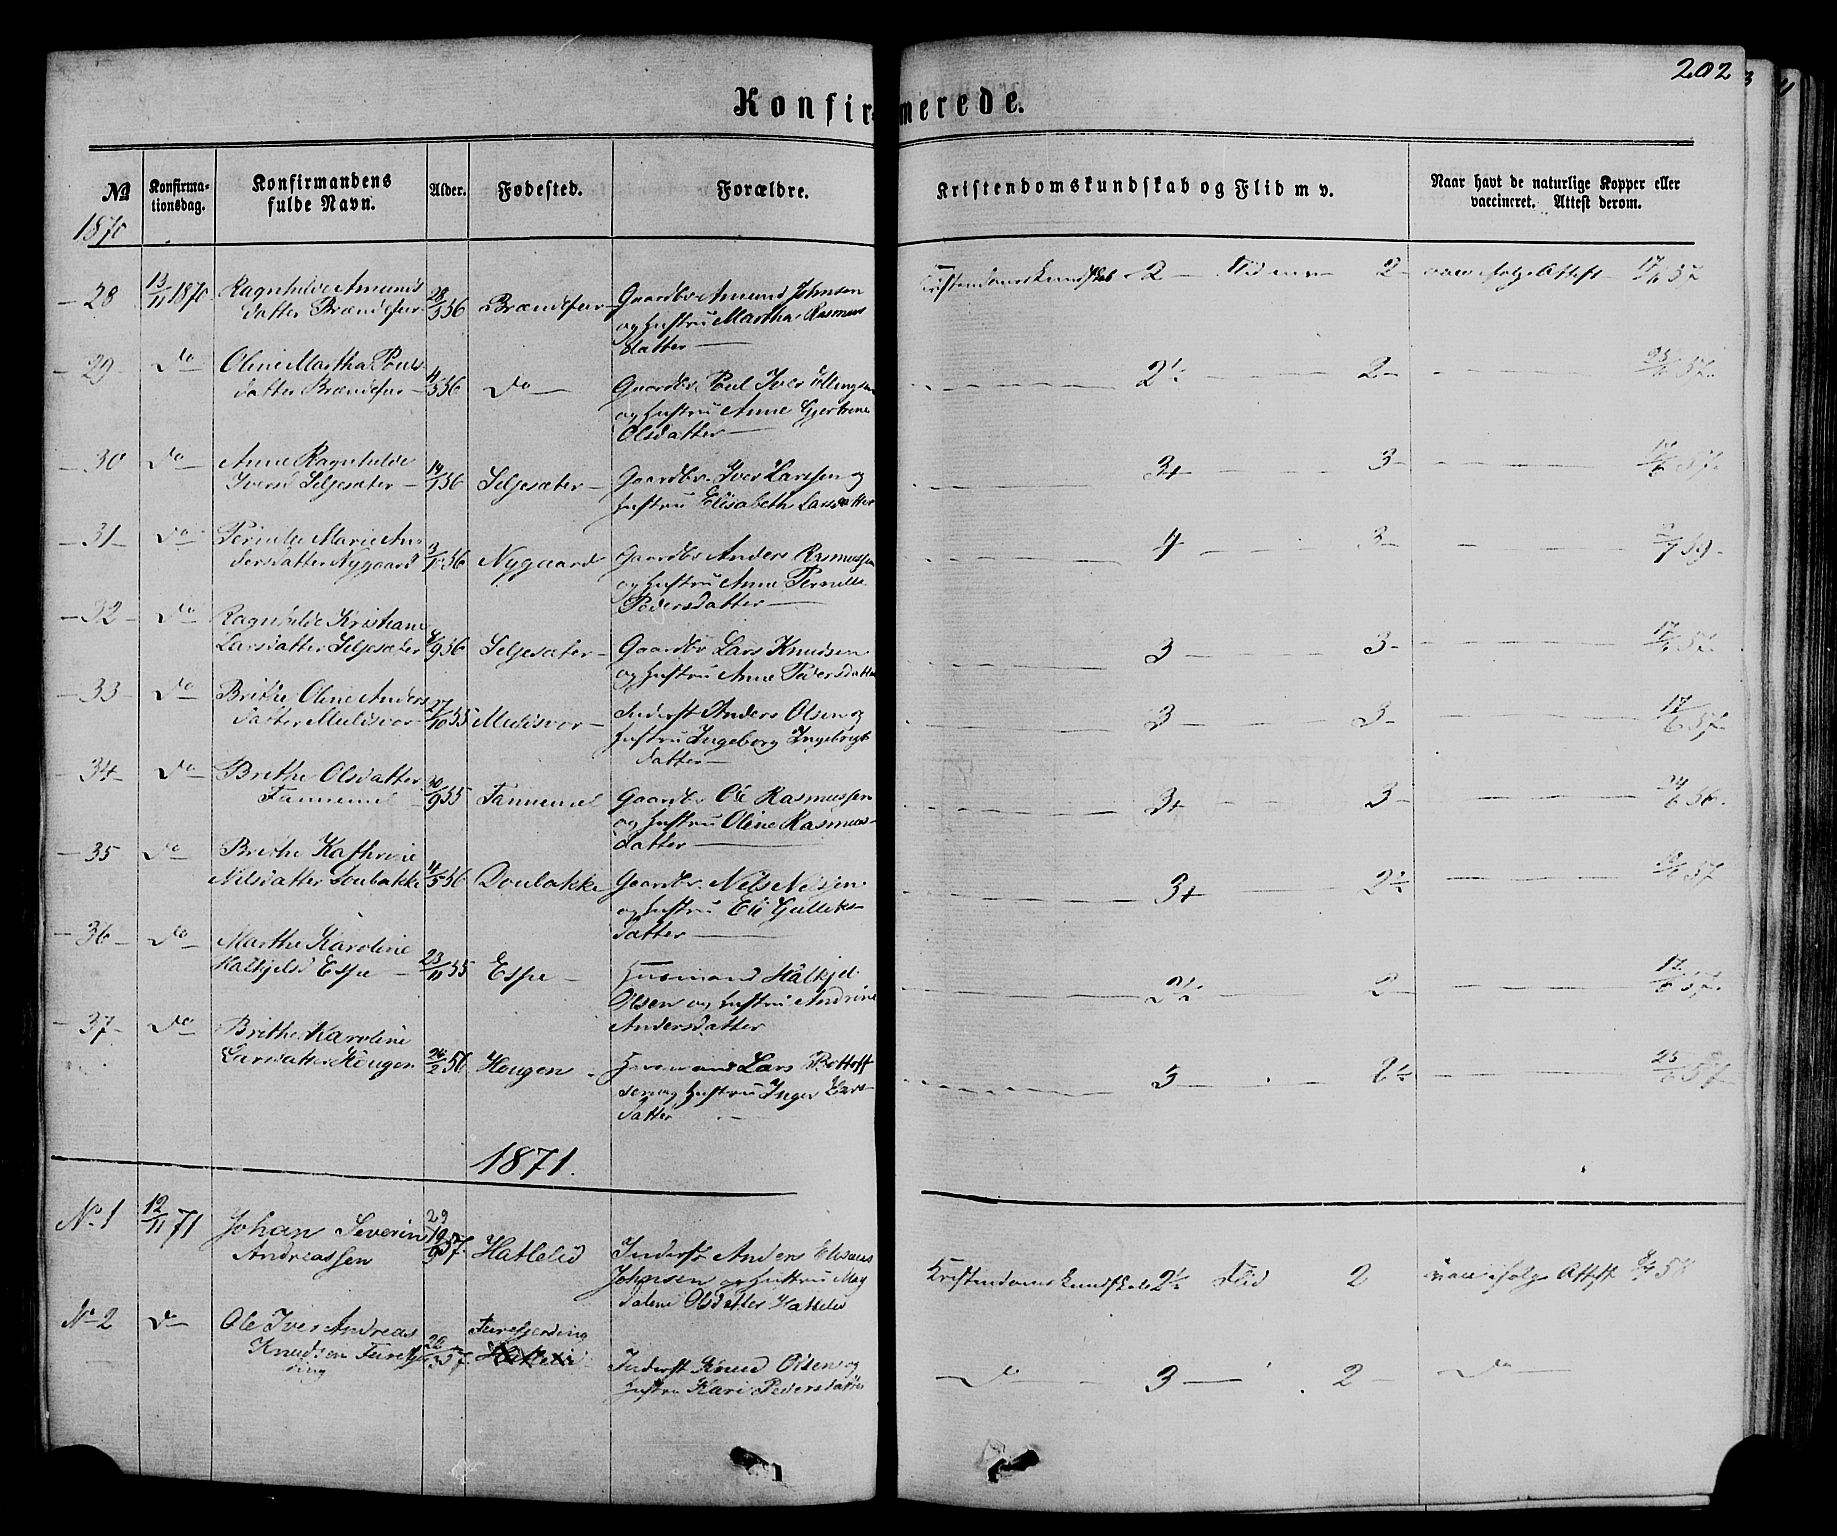 202
Konfirmerede.
No
Konfirma-
tionsdag.
Konfirmandens
fulde Navn.
Alder.
Fødested.
Forældre.
Kristendomskundskab og Flid m v.
Naar havt de naturlige Kopper eller
vaccineret. Attest derom.
1870
28 13/11 1870 Ragnhilde Amunds
datter Brændefur 28/3 56 Brændefur Gaardbr Amund Johnsen
og hustru Martha Rasmus
datter
Kristendomskundskab 2 Flid m v 2 vacc ifølge Attest 17/6 57
29 Do Oline Martha Pouls
datter Brændefur 11/3 56 Do Gaardbr. Poul Iver Ellingsen
og hustru Anne Gjertrine
Olsdatter
2½ 2 57
30 Do Anne Ragnhilde
Iversd Seljesæter 19/1 56 Seljesæter Gaardbr. Iver Larssen og
hustru Elisabeth Larsdatter
3+ 3 17/6 57
31 Do Pernille Marie An-
dersdatter Nygaard 56 Nygaard Gaardbr Anders Rasmussen
og hustru Anne Pernille
Pedersdatter
4 3 59
32 Do Ragnhilde Kristiane
Larsdatter Seljesæter 9 56 Seljesæter Gaardbr Lars Knudsen
og hustru Anne Pedersdatter
3 3 17/6 57
33 Do Brithe Oline Anders
datter Muldsvor 27/10 55 Muldsvor Inderst Anders Olsen og
hustru Ingeborg Ingebrigts
datter
3 3 17/6 57
34 Do Brithe Olsdatter
Tannemel 30/9 55 Tannemel Gaardbr Ole Rasmussen
og hustru Oline Rasmus-
datter
3+ 3 24/6 56
35 Do Brithe Kathrine
Nilsdatter Doubakke 11/5 56 Doubakke Gaardbr. Nels Nelsen
og hustru Eli Gulleks
datter
3+ 2½ 57
36 Do Marthe Karoline
Halkjelsd Espe 23/11 55 Espe Husmand Halkjel
Olsen og hustru Andrine
Andersdatter
2½ 2 17/6 57
37 Do Brithe Karoline
Larsdatter Hougen 26/2 56 Hougen Husmand Lars
sen og hustru Inger Lars
datter
3 2½ 25/6 57
1871.
No. 1 12/11 71 Johan Severin
Andreassen 29 19/9 57 Hatleli Inderst Anders Elisæus
Johnsen og hustru Mag
dalene Olsdatter Hatleli
Kristendomskundskab 2½ Flid 2 vacc ifølge Attest
No 2 Do Ole Iver Andreas
Knudsen Furefjor
ding 20/3 57 Furefjording
Hatleli
Inderst Knud Olsen og
hustru Kari Pedersdatter
Do 3 2 Do